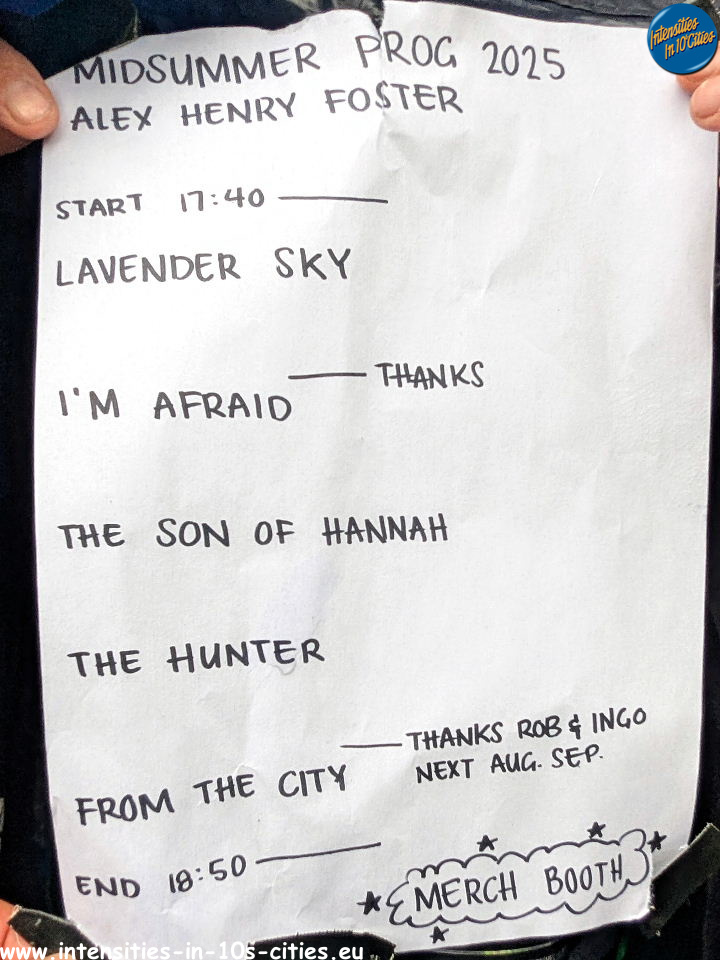 Intensities
In 10'Cities
MIDSUMMER PROG 2025
ALEX HENRY FOSTER
START 17:40
LAVENDER SKY
THANKS
I'M AFRAID
THE SON OF HANNAH
THE HUNTER
THANKS ROB & INGO
NEXT AUG. SEP.
FROM THE CITY
END 18:50
MERCH BOOTH
www.intensities-in-10s-cities.eu